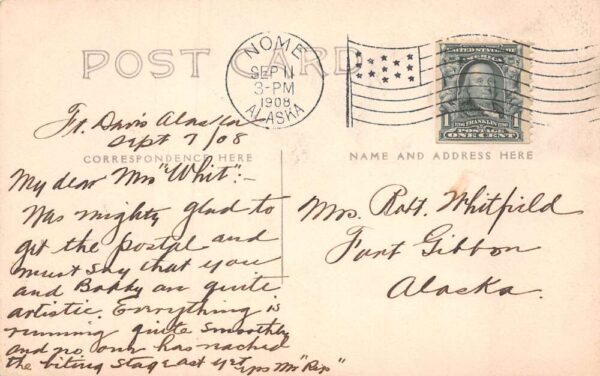 POST CARD
NOME
SEP 11
3-PM
1908
ALASKA
UNITED STATES OF AMERICA
FRANKLIN
POSTAGE
ONE CENT
Ft. Davis Alaska
Sept 7/08
CORRESPONDENCE HERE
NAME AND ADDRESS HERE
My dear Mrs "Whit":-
Was mighty glad to
get the postal and
must say that you
and Bobby are quite
artistic. Everything is
running quite smoothly
and no one has reached
the biting stage as yet
Mrs. Robt. Whitfield
Fort Gibbon
Alaska.